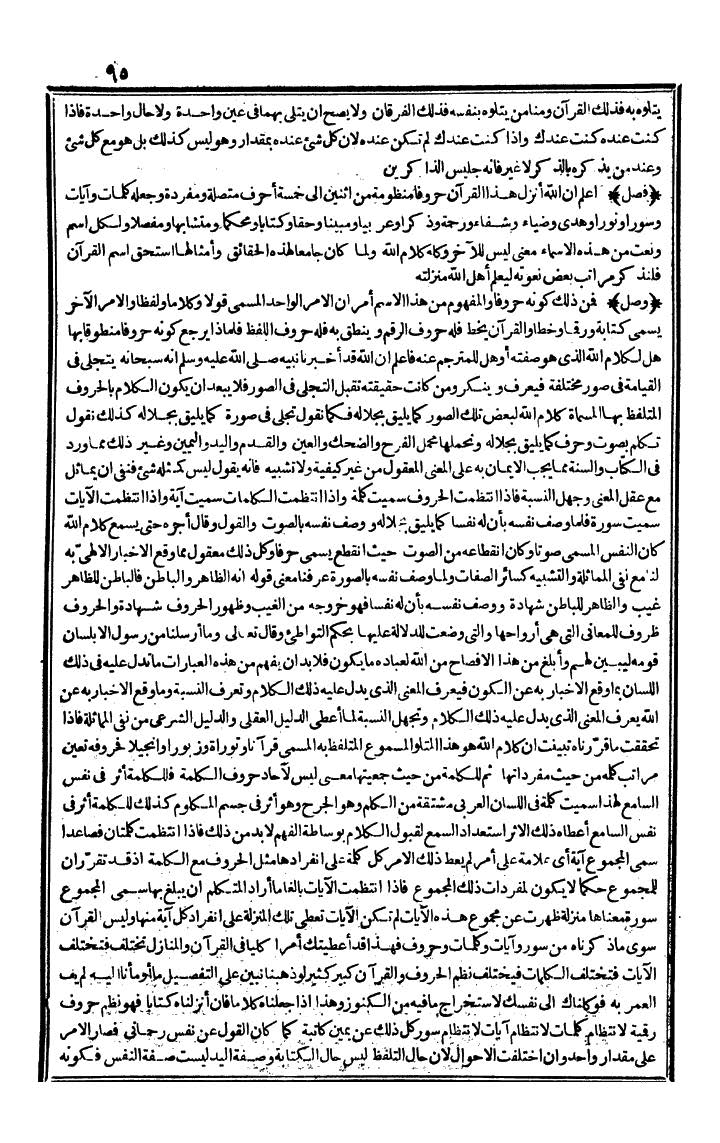 ٩٥
يتلوه به فذلك القرآن ومنا من يتلوه بنفسه فذلك الفرقان ولا يصح أن يتلى بهما فى عين واحدة ولا حال واحدة فاذا
كنت عنده كنت عندك واذا كنت عندك لم تكن عنده لان كل شئ عنده بمقدار وهو ليس كذلك بل هو مع كل شئ
وعند من يذكره بالذكر لا غير فانه جليس الذاكرين
﴿فصل﴾ اعلم ان الله أنزل هذا القرآن حروفا منظومة من اثنين الى خمسة أحرف متصلة ومفردة وجعله كلمات وآيات
وسورا ونورا وهدى وضياء وشفاء ورحمة وذكرا وعربيا ومبينا وحقا وكتابا ومحكما ومتشابها ومفصلا ولكل اسم
ونعت من هذه الاسماء معنى ليس للآخر وكله كلام الله ولما كان جامعا لهذه الحقائق وأمثالها استحق اسم القرآن
فلنذكر مراتب بعض نعوته ليعلم أهل الله منزلته
﴿وصل﴾ فمن ذلك كونه حروفا والمفهوم من هذا الاسم أمران الامر الواحد المسمى قولا وكلاما ولفظا والامر الآخر
يسمى كتابة ورقما وخطا والقرآن يخط فله حروف الرقم و ينطق به فله حروف اللفظ فلماذا يرجع كونه حروفا منطوقا بها
هل لكلام الله الذى هو صفته أو هل للمترجم عنه فاعلم ان الله قد أخبرنا نبيه صلى الله عليه وسلم انه سبحانه يتجلى فى
القيامة فى صور مختلفة فيعرف و ينكر ومن كانت حقيقته تقبل التجلى فى الصور فلا يبعد ان يكون الكلام بالحروف
المتلفظ بها المسماة كلام الله لبعض تلك الصور كما يليق بجلاله فكما نقول تجلى فى صورة كما يليق بجلاله كذلك نقول
تكلم بصوت وحرف كما يليق بجلاله ونحملها محمل الفرح والضحك والعين والقدم واليد واليمين وغير ذلك مما ورد
فى الكتاب والسنة مما يجب الايمان به على المعنى المعقول من غير كيفية ولا تشبيه فانه يقول ليس كمثله شئ فنفى ان يماثل
مع عقل المعنى وجهل النسبة فاذا انتظمت الحروف سميت كلمة واذا انتظمت الكلمات سميت آية واذا انتظمت الآيات
سميت سورة فلما وصف نفسه بأن له نفسا كما يليق بجلاله ووصف نفسه بالصوت والقول وقال أجره حتى يسمع كلام الله
كان النفس المسمى صوتا وكان انقطاعه من الصوت حيث انقطع يسمى حرفا وكل ذلك معقول مما وقع الاخبار الالهىّ به
لنا مع نفى المماثلة والتشبيه كسائر الصفات ولما وصف نفسه بالصورة عرفنا معنى قوله انه الظاهر والباطن فالباطن للظاهر
غيب والظاهر للباطن شهادة ووصف نفسه بأن له نفسا فهو خروجه من الغيب وظهور الحروف شهادة والحروف
ظروف للمعانى التى هى أرواحها والتى وضعت للدلالة عليها بحكم التواطئ وقال تعالى وما أرسلنا من رسول الا بلسان
قومه ليبين لهم وأبلغ من هذا الافصاح من الله لعباده ما يكون فلا بد ان يفهم من هذه العبارات ما تدل عليه فى ذلك
اللسان بما وقع الاخبار به عن الكون فيعرف المعنى الذى يدل عليه ذلك الكلام وتعرف النسبة وما وقع الاخبار به عن
الله يعرف المعنى الذى يدل عليه ذلك الكلام وتجهل النسبة لما أعطى الدليل العقلى والدليل الشرعى من نفى المماثلة فاذا
تحققت ما قرّرناه تبينت ان كلام الله هو هذا المتلو المسموع المتلفظ به المسمى قرآنا وتوراة وزبورا وانجيلا فحروفه تعين
مراتب كله من حيث مفرداتها ثم للكلمة من حيث جمعيتها معنى ليس لآحاد حروف الكلمة فللكلمة أثر فى نفس
السامع لهذا سميت كلمة فى اللسان العربى مشتقة من الكلم وهو الجرح وهو أثر فى جسم المكلوم كذلك للكلمة أثر فى
نفس السامع أعطاه ذلك الاثر استعداد السمع لقبول الكلام بوساطة الفهم لا بد من ذلك فاذا انتظمت كلمتان فصاعدا
سمى المجموع آية أى علامة على أمر لم يعط ذلك الامر كل كلمة على انفرادها مثل الحروف مع الكلمة اذ قد تقرّر ان
للمجموع حكما لا يكون لمفردات ذلك المجموع فاذا انتظمت الآيات بالغا ما أراد المتكلم ان يبلغ بها سمى المجموع
سورة معناها منزلة ظهرت عن مجموع هذه الآيات لم تكن الآيات تعطى تلك المنزلة على انفراد كل آية منها وليس القرآن
سوى ما ذكرناه من سور وآيات وكلمات وحروف فهذا قد أعطيتك أمرا كليا فى القرآن والمنازل تختلف فتختلف
الآيات فتختلف الكلمات فيختلف نظم الحروف والقرآن كبير كثير لو ذهبنا نبين على التفصيل ما أومأنا اليه لم يف
العمر به فوكلناك الى نفسك لاستخراج ما فيه من الكنوز وهذا اذا جعلناه كلاما فان أنزلناه كتابا فهو نظم حروف
رقمية لانتظام كلمات لانتظام آيات لانتظام سور كل ذلك عن يمين كاتبة كما كان القول عن نفس رحمانى فصار الامر
على مقدار واحد وان اختلفت الاحوال لان حال التلفظ ليس حال الكتابة وصفة اليد ليست صفة النفس فكونه